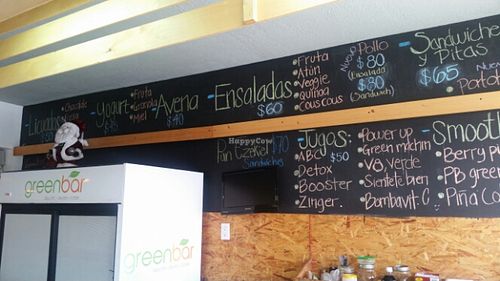 - Licuados
Chocolate
- Yogurt
Fruta
Granola
Miel
- Avena
$40
- Ensaladas
$60
Fruta
Atún
Veggie
Quinoa
Couscous
Nuevo Pollo
$80
(Ensalada)
$80
(Sandwich)
- Sandwiche
y Pitas
$65
Pan Ezekiel $70
Sandwiches
HappyCow
- Jugos
$50
ABC
Detox
Booster
Zinger.
Power up
Green machin
V8 Verde
Sientete bien
Bombavit C
- Smooth
Berry
PB green
Piña Co
greenbar
greenbar